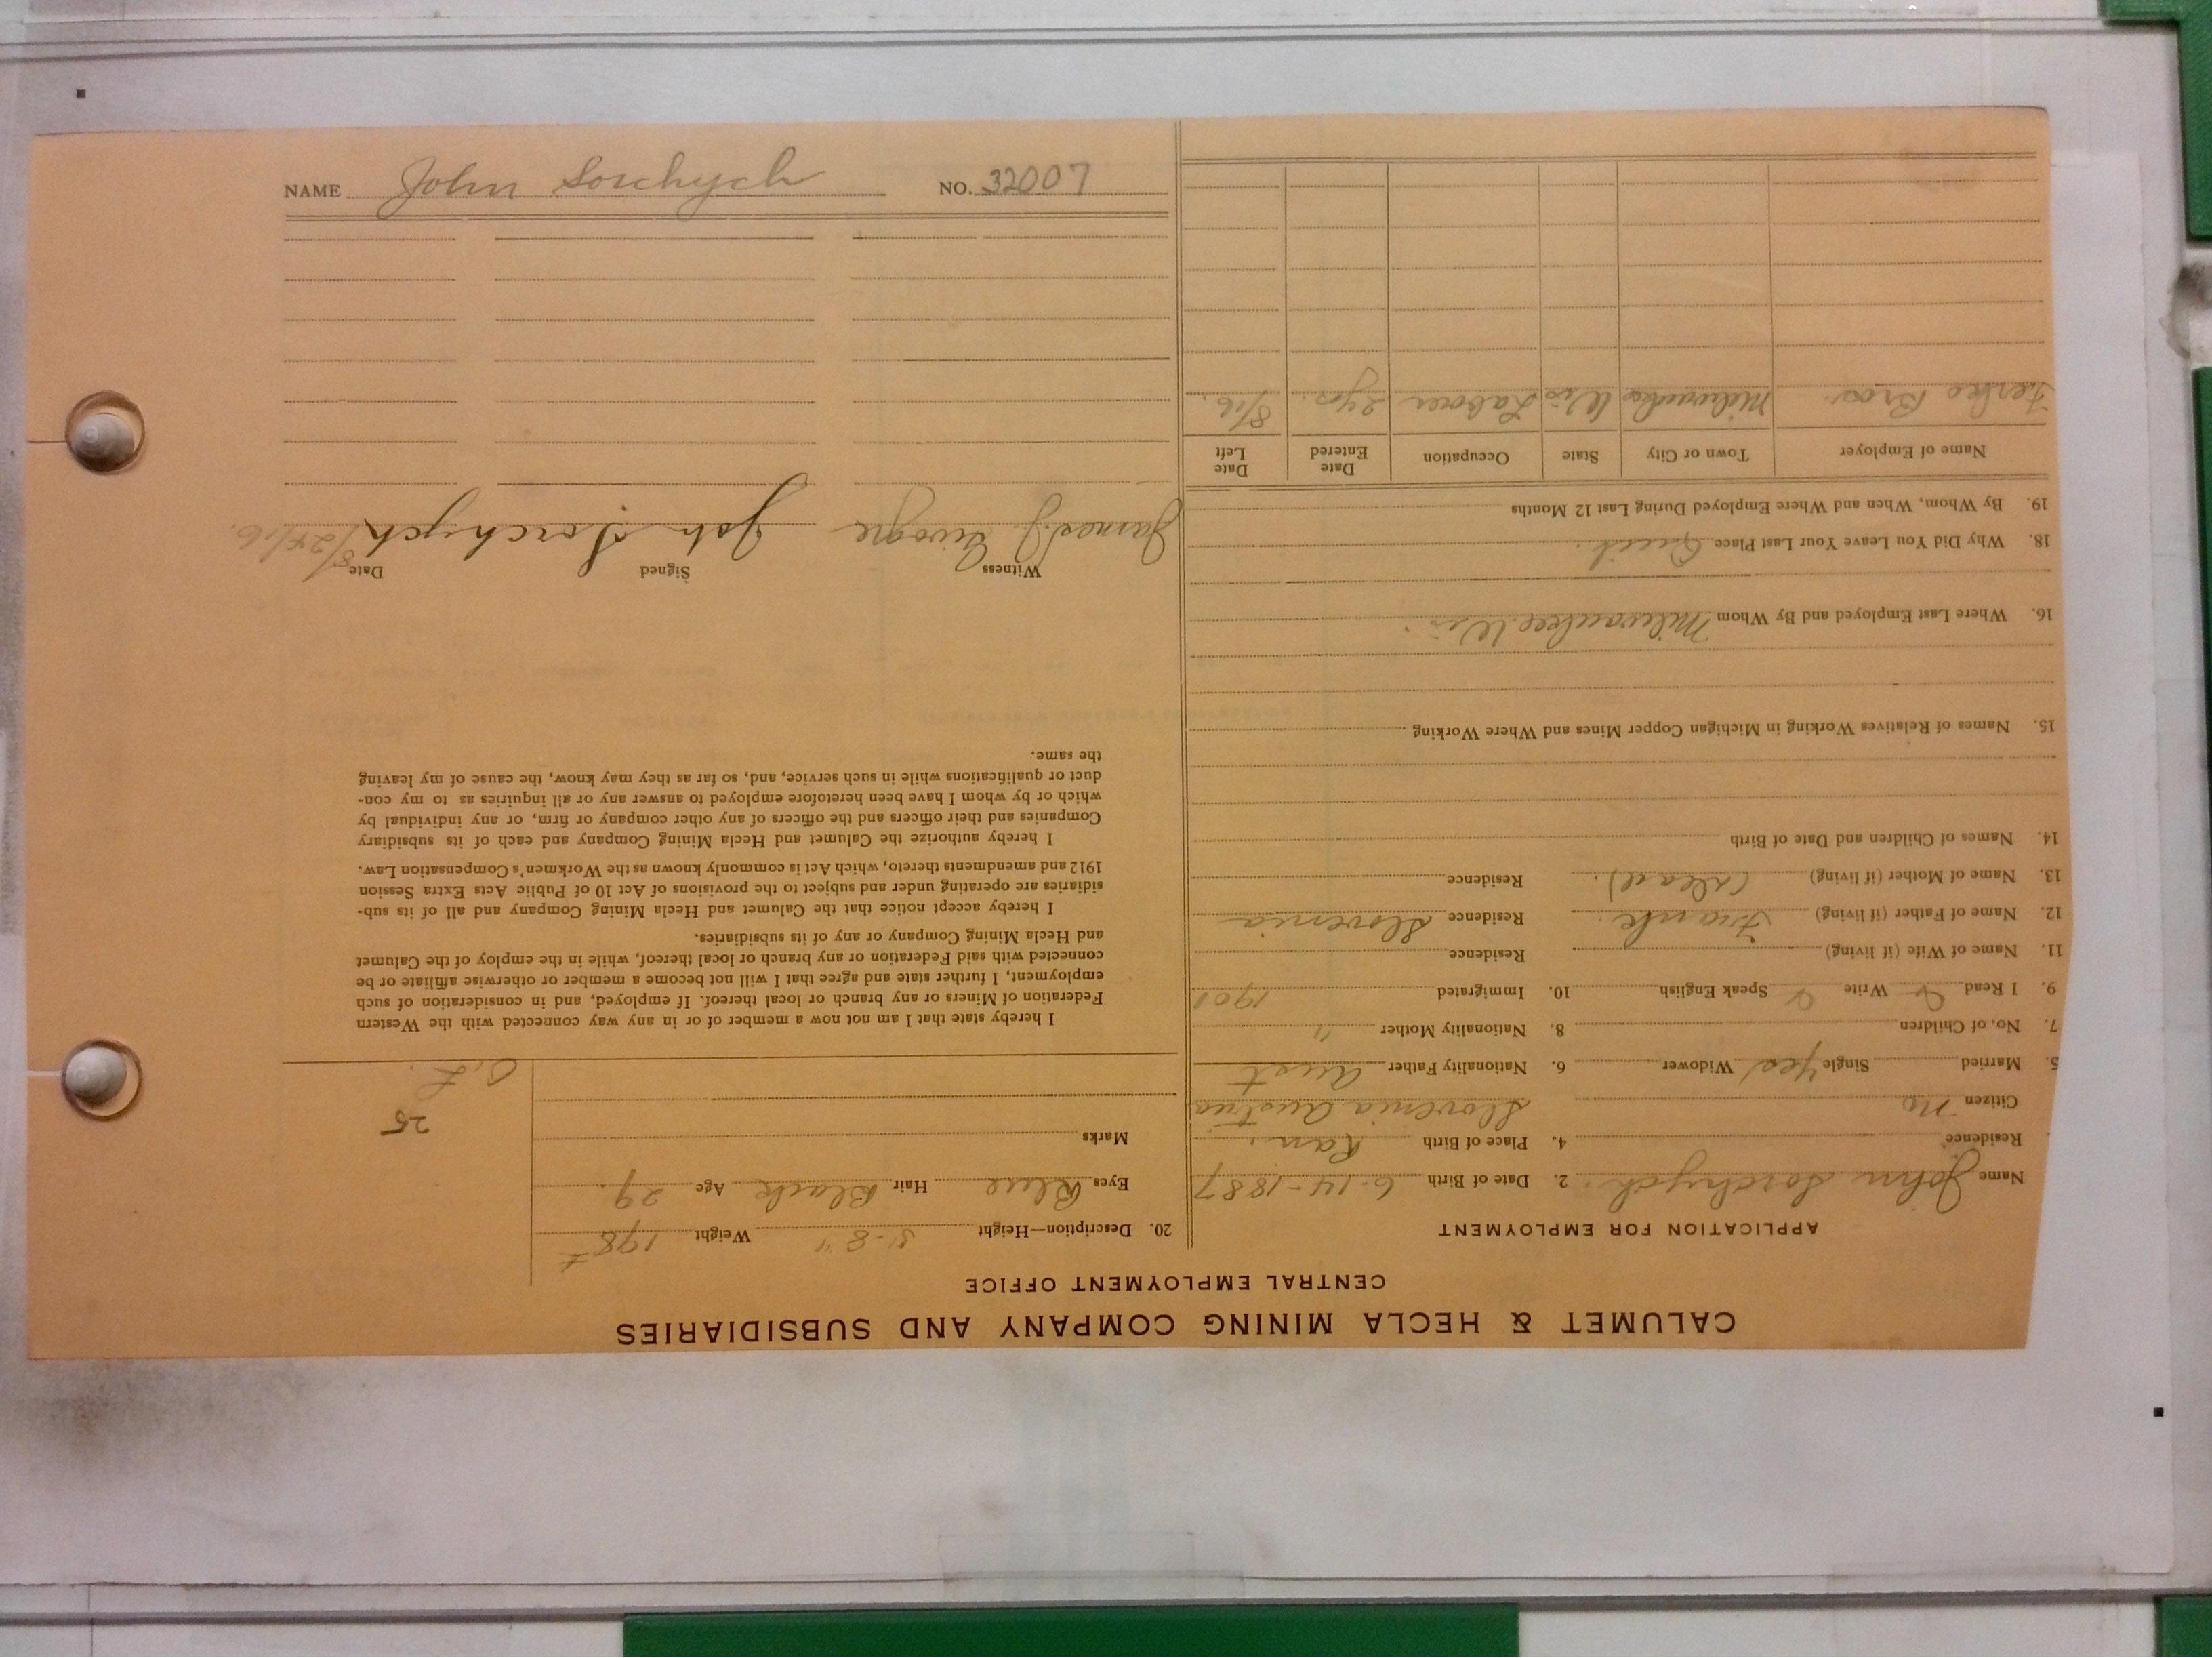 NAME John Sorchych NO. 32007
CALUMET & HECLA MINING COMPANY AND SUBSIDIARIES
CENTRAL EMPLOYMENT OFFICE
APPLICATION FOR EMPLOYMENT
Name John Sorchych. 2. Date of Birth 6-14-1887
Residence 4. Place of Birth Ran.
Citizen No Slovenia Austria
5. Married Single Yes Widower 6. Nationality Father Aust
7. No. of Children 8. Nationality Mother "
9. I Read Write Speak English 10. Immigrated 1901
11. Name of Wife (if living) Residence
12. Name of Father (if living) Frank. Residence Slovenia
13. Name of Mother (if living) (Dead). Residence
14. Names of Children and Date of Birth
15. Names of Relatives Working in Michigan Copper Mines and Where Working
16. Where Last Employed and By Whom Milwaukee Wis.
18. Why Did You Leave Your Last Place Quit.
19. By Whom, When and Where Employed During Last 12 Months
Name of Employer Town or City State Occupation Date Entered Date Left
Bros. Milwaukee Wis Laborer 2 yrs. 8/16.
20. Description—Height 5-8" Weight 198 #
Eyes Blue Hair Black Age 29.
Marks
25
O.L.
I hereby state that I am not now a member of or in any way connected with the Western
Federation of Miners or any branch or local thereof. If employed, and in consideration of such
employment, I further state and agree that I will not become a member or otherwise affiliate or be
connected with said Federation or any branch or local thereof, while in the employ of the Calumet
and Hecla Mining Company or any of its subsidiaries.
I hereby accept notice that the Calumet and Hecla Mining Company and all of its sub-
sidiaries are operating under and subject to the provisions of Act 10 of Public Acts Extra Session
1912 and amendments thereto, which Act is commonly known as the Workmen's Compensation Law.
I hereby authorize the Calumet and Hecla Mining Company and each of its subsidiary
Companies and their officers and the officers of any other company or firm, or any individual by
which or by whom I have been heretofore employed to answer any or all inquiries as to my con-
duct or qualifications while in such service, and, so far as they may know, the cause of my leaving
the same.
Witness Signed Date
James J. Joh Sorchych 8/24/16.